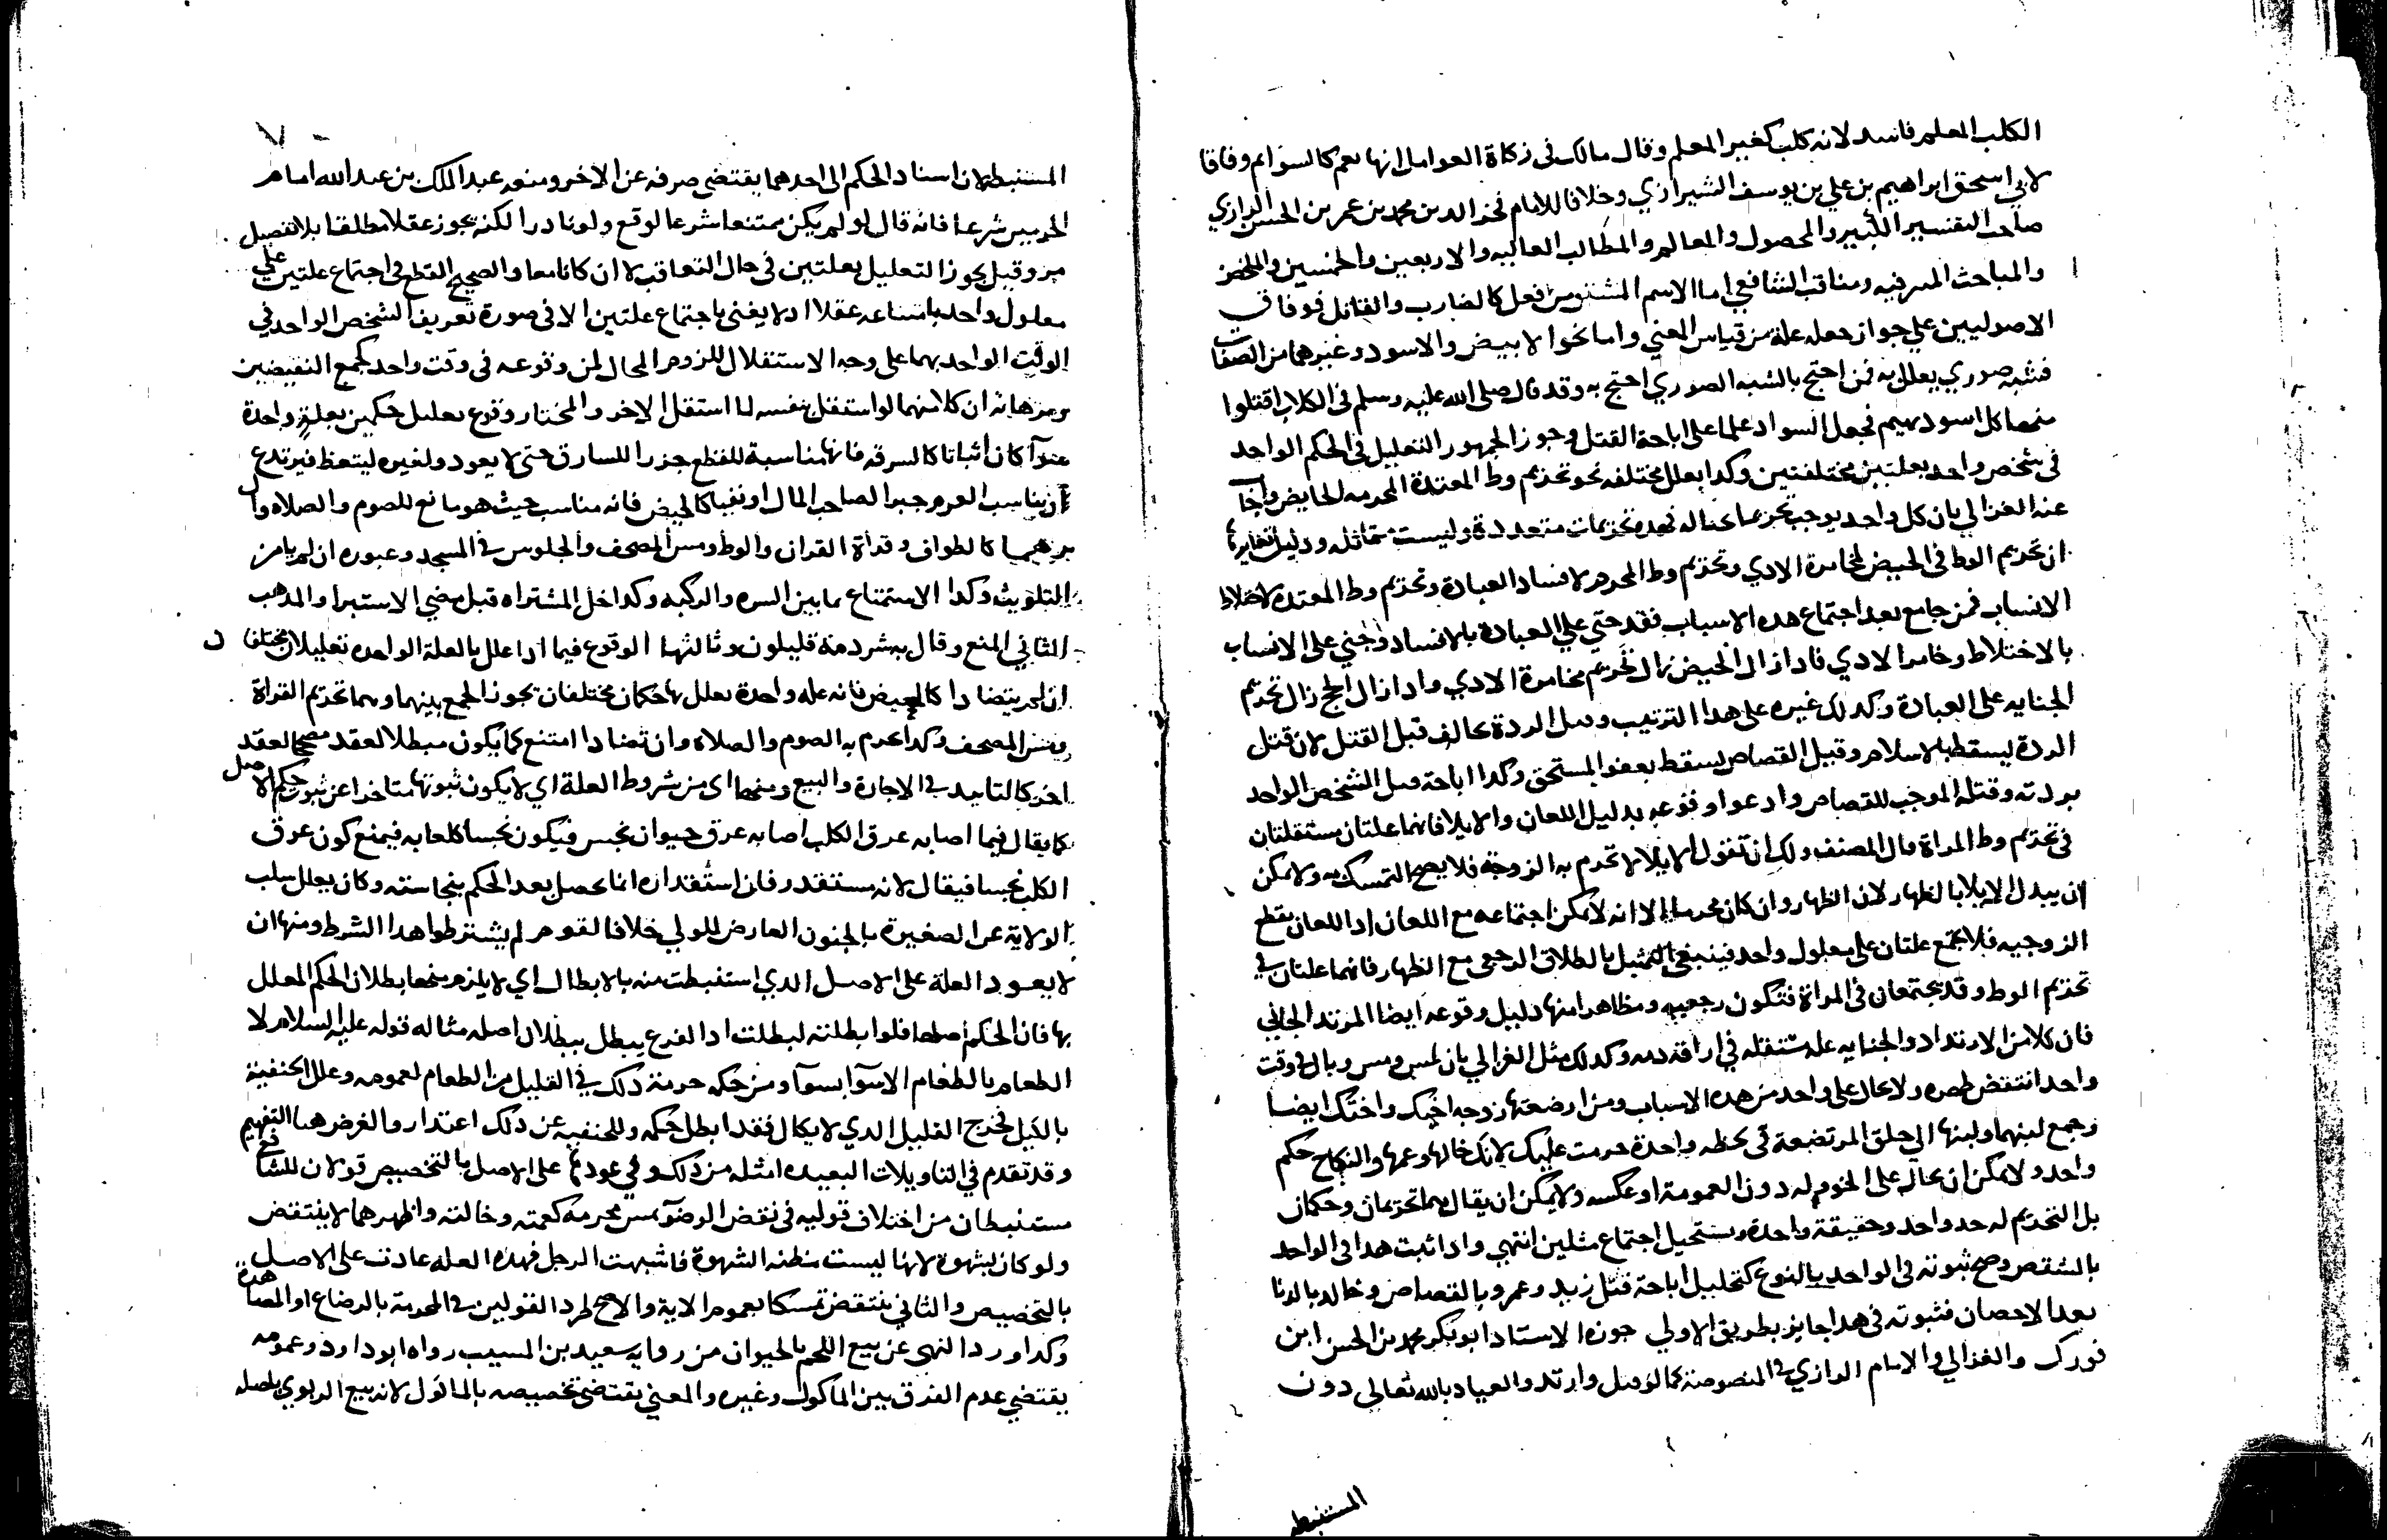 الكلب المعلم فاسد لانه كلب كغير المعلم وقال مالك في زكاة العوامل انها نعم كالسوايم وفاقا
لابي اسحق ابراهيم بن علي بن يوسف الشيرازي وخلافا للامام فخر الدين محمد بن عمر بن الحسن الرازي
صاحب التفسير الكبير والمحصول والمعالم والمطالب العاليه والاربعين والخمسين والملخص
والمباحث المشرقيه ومناقب الشافعي اما الاسم المشتق من فعل كالضارب والقاتل فوفاق
الاصوليين علي جواز جعله علة من قياس المعني واما نحوا لابيض والاسود وغيرهما من الصفات
فشبه صوري يعلل به فمن احتج بالشبه الصوري احتج به وقد قال صلى الله عليه وسلم في الكلاب اقتلوا
منها كل اسود بهيم فجعل السواد علما على اباحة القتل وجوز الجمهور التعليل في الحكم الواحد
في شخص واحد بعلتين مختلفتين وكدا بعلل مختلفه نحو تحريم وط المعتدة المحرمه الحايض واجاب
عنه الغزالي بان كل واحد يوجب تحريما بحياله فهده تحريمات متعددة وليست متماثله ودليل تغايرها
ان تحريم الوط في الحيض لمخامرة الادي وتحريم وط المحرم لافساد العبادة وتحريم وط المعتدة لاختلاط
الانساب فمن جامع بعد اجتماع هده الاسباب فقد جني علي العبادة بالافساد وجني على الانساب
بالاختلاط وخامر الادي فادا زال الحيض زال تحريم مخامرة الادي وادا زال الحج زال تحريم
الجنايه على العبادة وكدلك غيره على هدا الترتيب وقتل الردة يخالف قبل القتل لان قتل
الردة يسقط بالاسلام وقبيل القصاص يسقط بعفو المستحق وكدا اباحة قتل الشخص الواحد
بردته وقتله الموجب للقصاص وادعوا وقوعه بدليل اللعان والايلا فانهما علتان مستقلتان
في تحريم وط المراة قال المصنف ولك ان تقول الايلا لا تحرم به الزوجة فلا يصح التمسك به ولا يمكن
ان يبدل الايلا بالظهار لان الظهار وان كان محرما الا انه لا يمكن اجتماعه مع اللعان اد اللعان يقطع
الزوجيه فلا يجتمع علتان على معلول واحد فينبغي التمثيل بالطلاق الرجعي مع الظهار فانهما علتان في
تحريم الوط وقد يجتمعان في المراة فتكون رجعيه ومظاهرا منها دليل وقوعه ايضا المرتد الجاني
فان كلا من الارتداد والجنايه علة مستقله في اراقة دمه وكدلك مثل الغزالي بان لمس ومس وبال في وقت
واحد انتقض طهره ولا يحال على واحد من هده الاسباب ومن ارضعتها زوجه اخيك واختك ايضا
وجمع لبنهما ولبنها الي حلق المرتضعة في لحظه واحدة حرمت عليك لانك خالها وعمها والنكاح حكم
واحد ولا يمكن ان يحال على الخوولة دون العمومة او عكسه ولا يمكن ان يقال هما تحريمان وحكمان
بل التحريم له حد واحد وحقيقة واحدة ويستحيل اجتماع مثلين انتهي وادا ثبت هدا في الواحد
بالشخص وصح ثبوته في الواحد بالنوع كتحليل اباحة قتل زيد وعمرو بالقصاص وخالد بالزنا
بعد الاحصان فثبوته في هدا جايز بطريق الاولي جوزه الاستاد ابو بكر محمد بن الحسن ابن
فورك والغزالي والامام الرازي في المنصوصة كما لو قتل وارتد والعياد بالله تعالى دون
المستنبطه
المستنبطة لان اسناد الحكم الى احدهما يقتضي صرفه عن الاخر ومنعه عبد الملك بن عبد الله امام
الحرمين شرعا فانه قال لو لم يكن ممتنعا شرعا لوقع ولو نادرا لكنه يجوز عقلا مطلقا بلا تفصيل
وقيل يجوز التعليل بعلتين في حال التعاقب لا ان كانا معا والصحيح القطع في اجتماع علتين علي
معلول واحد بامتناعه عقلا اد لا يغني باجتماع علتين الا في صورة تعريف الشخص الواحد في
الوقت الواحد بهما على وجه الاستقلال للزوم المحال لمن وقوعه في وقت واحد كجمع النقيضين
وبرهانه ان كلا منهما لو استقل بنفسه لما استقل الاخر والمختار وقوع تعليل حكمين بعلة واحدة
سوآ كان اثباتا كالسرقه فانها مناسبة للقطع جزرا للسارق حتى لا يعود ولغيره ليتعظ فيرتدع
ان يناسب الغرم جبرا لصاحب المال او نفيا كالحيض فانه مناسب حيث هو مانع للصوم والصلاه وا
كالطواف وقراة القران والوط ومس المصحف والجلوس في المسجد وعبوره ان لم يامن
التلويث وكدا الاستمتاع بما بين السره والركبه وكدا حل المشتراه قبل مضي الاستبرا والمدهب
الثاني المنع وقال به شردمة قليلون وثالثها الوقوع فيما ادا علل بالعلة الواحده تعليلان مختلفا ن
ان لم يتضادا كالحيض فانه علة واحدة يعلل بها حكمان مختلفان يجوز الجمع بينهما وهما تحريم القراة
ومس المصحف وكدا تحريم به الصوم والصلاه وان تضادا امتنع كما يكون مبطلا لعقد مصححا لعقد
اخر كالتابيد في الاجارة والبيع ومنها اى من شروط العلة اي لا يكون ثبوتها متاخرا عن ثبوت حكم الاصل
كما يقال فيما اصابه عرق الكلب اصابه عرق حيوان نجس فيكون نجسا كلعابه فيمنع كون عرق
الكلب نجسا فيقال لانه مستقدر فان استقداره انما يحصل بعد الحكم بنجاسته وكان يعلل سلب
الولاية عن الصغيرة بالجنون العارض للولي خلافا لقوم لم يشترطوا هدا الشرط ومنها ان
لا يعود العلة على الاصل الدي استنبطت منه بالابطال اي لا يلزم منها بطلان الحكم المعلل
بها فان الحكم اصلها فلو ابطلته لبطلت اد الفرع يبطل ببطلان اصله مثاله قوله عليه السلام لا
الطعام بالطعام الا سوآ بسوآ ومن حكمه حرمة دلك في القليل من الطعام لعمومه وعلل الحنفية
بالكيل فخرج القليل الدي لا يكال فقد ابطل حكمه وللحنفيه عن دلك اعتدار والغرض هنا التفهيم
وقد تقدم في التاويلات البعيده امثله من دلك وفي عودها على الاصل بالتخصيص قولان للشافعي
مستنبطان من اختلاف قوليه في نقض الوضوٓ بمس محرمه كعمته وخالته واظهرهما لا ينتقض
ولو كان بشهوة لانها ليست مظنه الشهوة فاشبهت الرجل فهده العله عادت على الاصل
بالتخصيص والثاني ينتقض تمسكا بعموم الاية والاصح طرد القولين في المحرمة بالرضاع او المصاهرة
وكدا ورد النهي عن بيع اللحم بالحيوان من روايه سعيد بن المسيب رواه ابو داود وعمومه
يقتضي عدم الفرق بين الماكول وغيره والمعني يقتضي تخصيصه بالماكول لانه بيع الربوي باصله